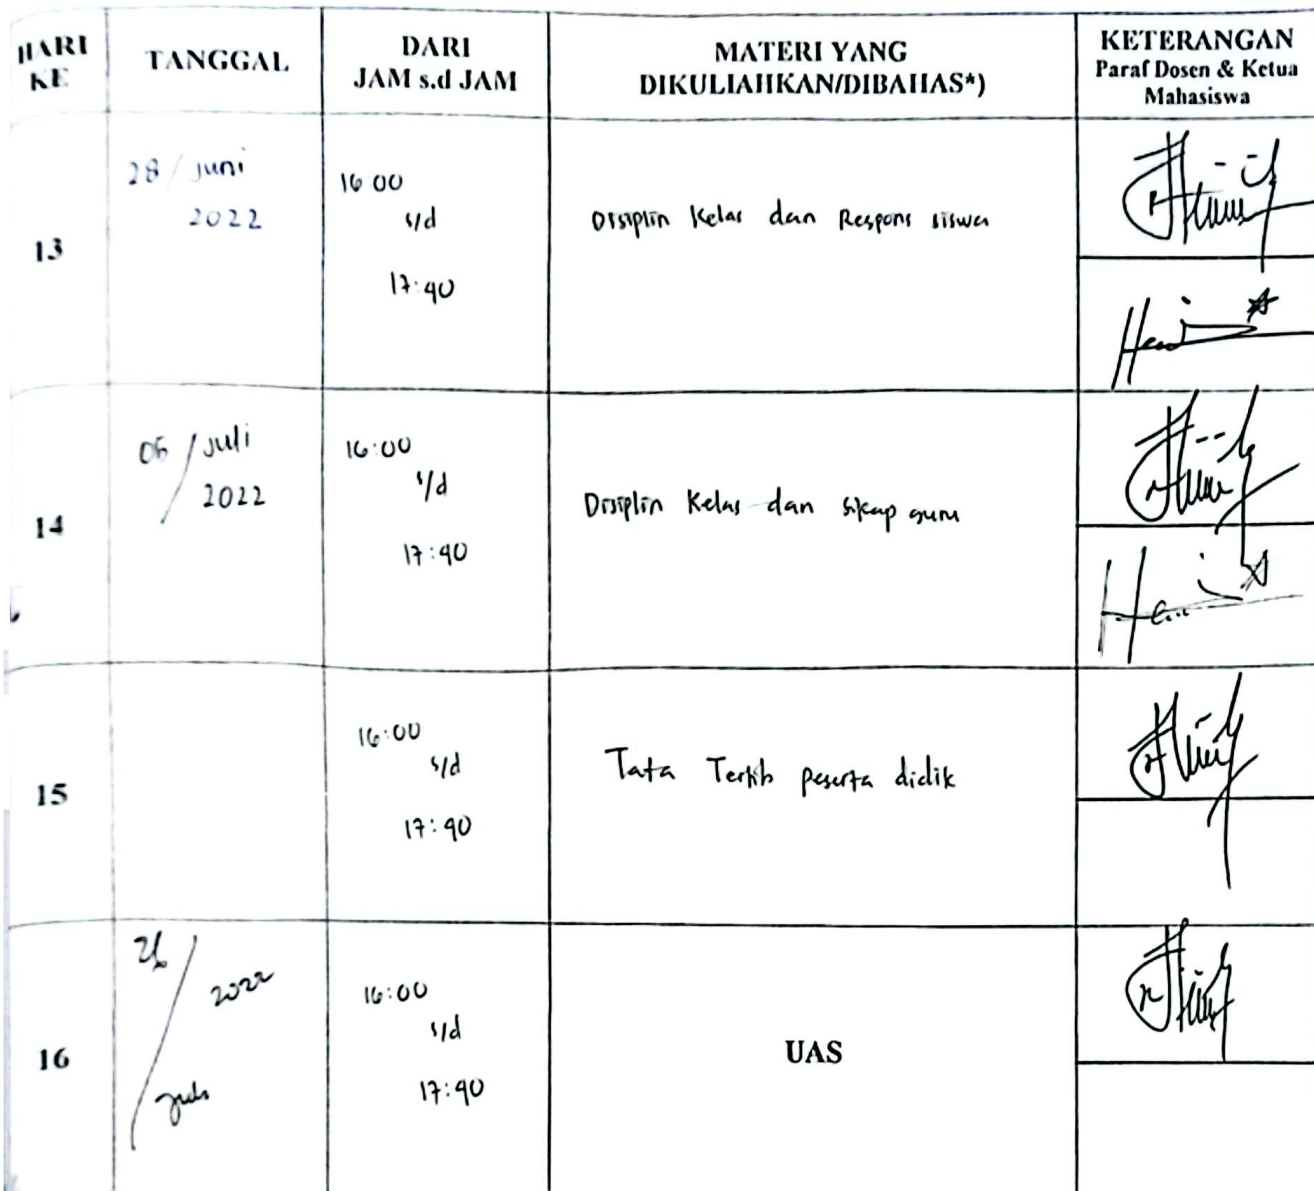 HARI KE
TANGGAL
DARI
JAM s.d JAM
MATERI YANG
DIKULIAHKAN/DIBAHAS*)
KETERANGAN
Paraf Dosen & Ketua
Mahasiswa
13
28 / Juni
2022
16 00
s/d
17:40
Disiplin Kelas dan Respons siswa
14
05 / Juli
2022
16:00
s/d
17:40
Disiplin Kelas dan sikap guru
15
16:00
s/d
17:40
Tata Tertib peserta didik
16
2022
16:00
s/d
17:40
UAS